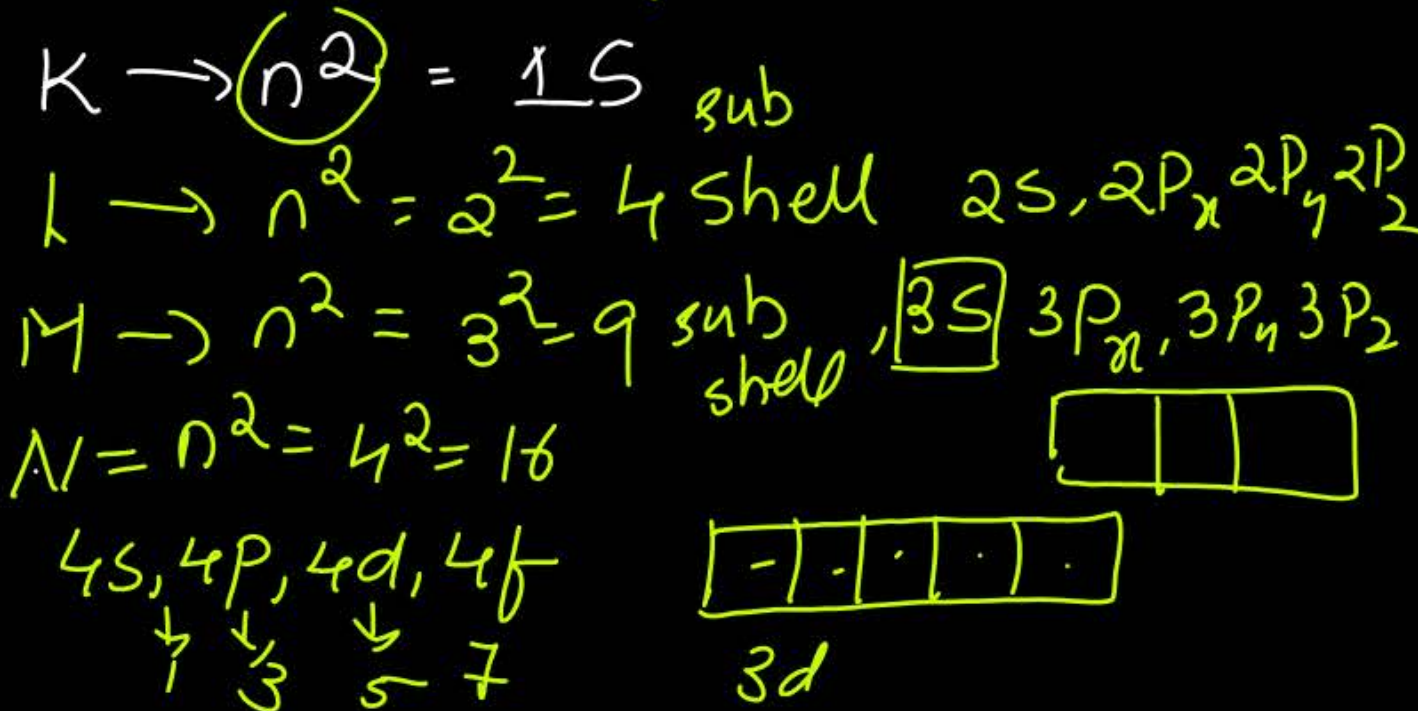 K → n² = 1S
L → n² = 2² = 4 sub shell 2S, 2Px 2Py 2Pz
M → n² = 3² = 9 sub shell, 3S 3Px, 3Py 3Pz
N = n² = 4² = 16
4s, 4p, 4d, 4f
↓ ↓ ↓
1 3 5 7
3d